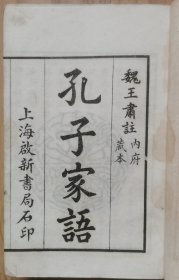 魏王肅註內府藏本
孔子家語
上海啟新書局石印